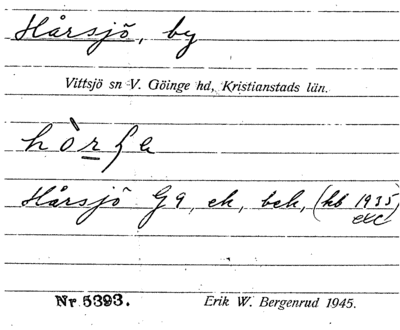 Hårsjö, by
Vittsjö sn V. Göinge hd, Kristianstads län.
Hårsjö G9, ek, bek, (kb 1935)
exc
Nr 5393. Erik W. Bergenrud 1945.